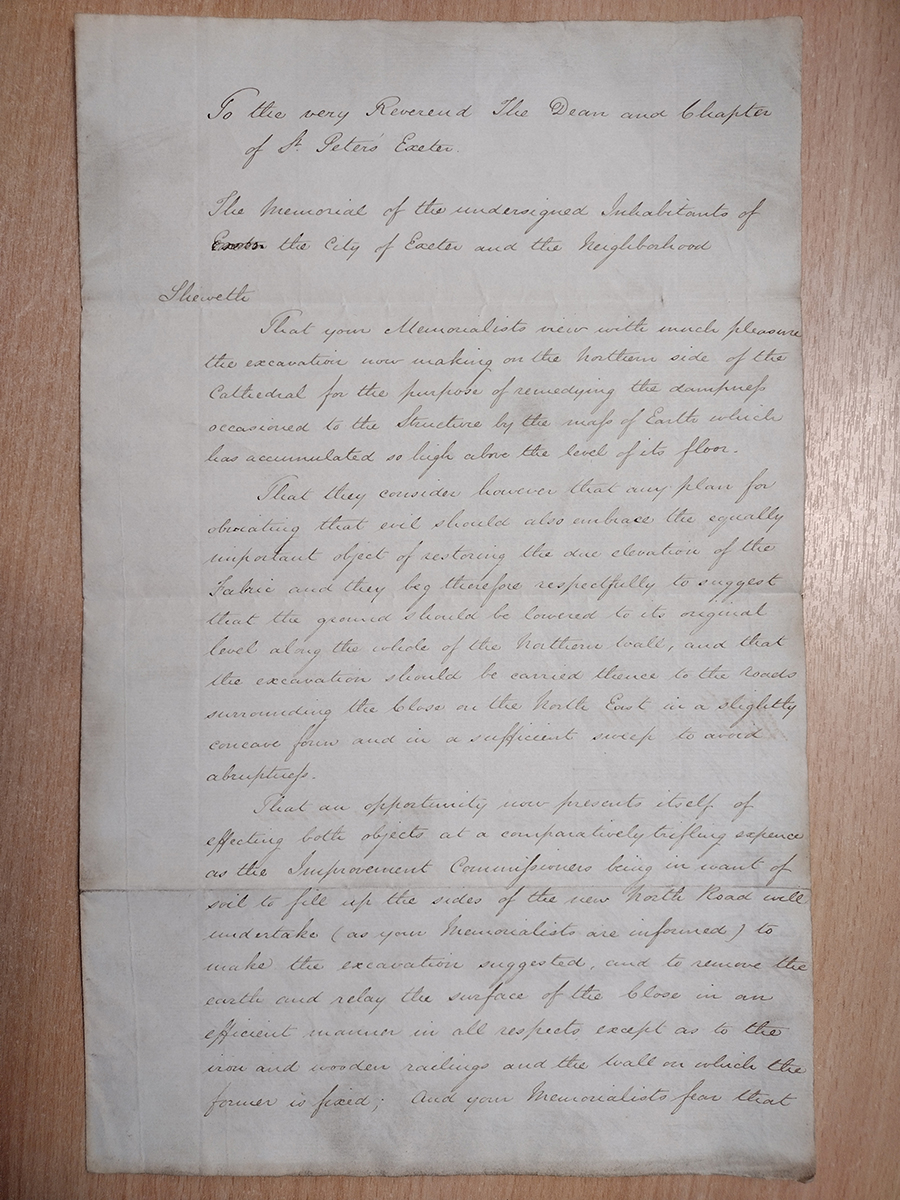 To the very Reverend The Dean and Chapter
of St. Peter's Exeter.
The Memorial of the undersigned Inhabitants of
the City of Exeter and the Neighborhood
Sheweth
That your Memorialists view with much pleasure
the excavation now making on the Northern side of the
Cathedral for the purpose of remedying the dampneſs
occasioned to the Structure by the maſs of Earth which
has accumulated so high above the level of its floor.
That they consider however that any plan for
obviating that evil should also embrace the equally
important object of restoring the due elevation of the
Fabric and they beg therefore respectfully to suggest
that the ground should be lowered to its original
level along the whole of the Northern Wall, and that
the excavation should be carried thence to the roads
surrounding the Close on the North East in a slightly
concave form and in a sufficient sweep to avoid
abruptneſs.
That an opportunity now presents itself of
effecting both objects at a comparatively trifling expence
as the Improvement Commiſsioners being in want of
soil to fill up the sides of the new North Road will
undertake (as your Memorialists are informed) to
make the excavation suggested, and to remove the
earth and relay the surface of the Close in an
efficient manner in all respects except as to the
iron and wooden railings and the Wall on which the
former is fixed; And your Memorialists fear that